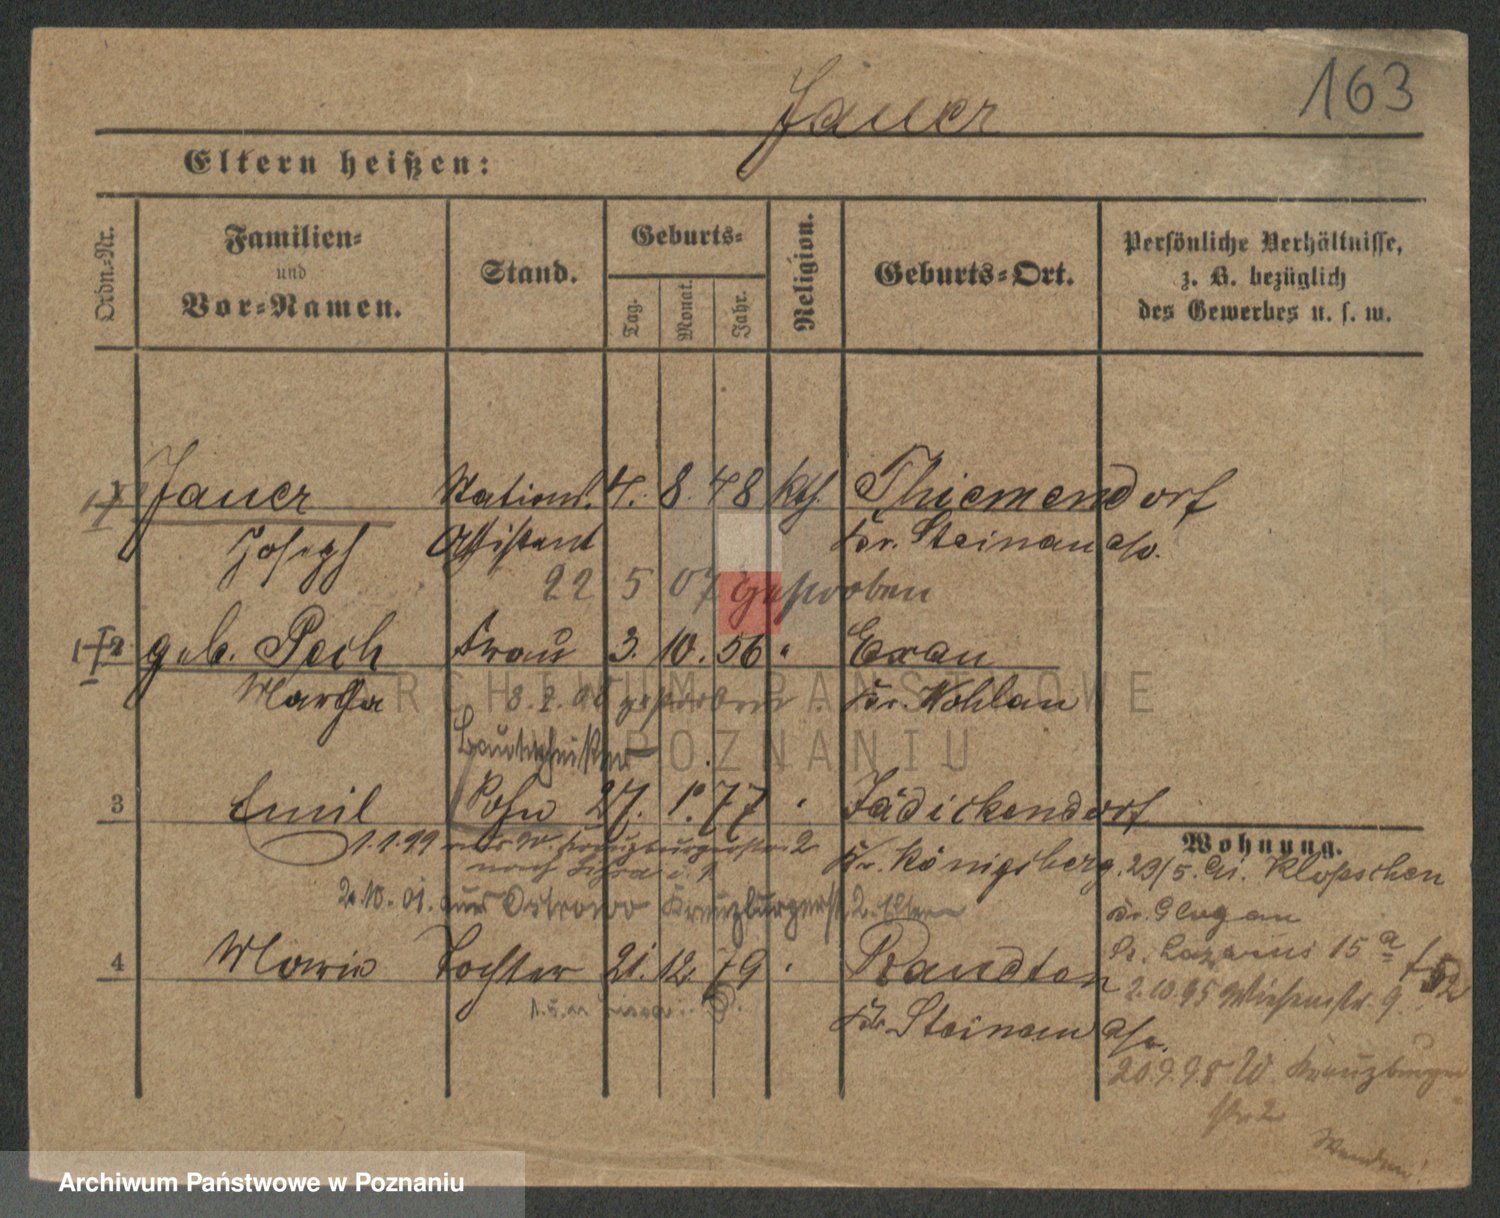 163
Jauer
Eltern heißen:
Ordn.-Nr.
Familien-
und
Vor-Namen.
Stand.
Geburts-
Tag.
Monat.
Jahr.
Religion.
Geburts-Ort.
Persönliche Verhältnisse,
z. B. bezüglich
des Gewerbes u. s. w.
1 Jauer Stations. 4. 8. 48 kth. Thiemendorf
Joseph Assistent Kr. Steinau a/o.
22 5 07 gestorben
2 geb. Pech Frau 3. 10. 56 " Exau
Martha gestorben Kr. Wohlau
Bautechniker
3 Emil Sohn 27. 1. 77 " Jädickendorf
Wohnung.
1.1.99 Kreuzburgerstr. 2 Kr. Königsberg. 29/5. Klopschen
2.10.01. aus Ostrowo Kreuzburgerst. 2. Eltern Kr. Glogau
4 Maria Tochter 21. 12. 79 " Raudten
St. Lazarus 15 a
2.10.95 Wiesenstr. 9.
Kr. Steinau a/o.
20.9.98 W. Kreuzburger
str 2
ARCHIWUM PAŃSTWOWE
W POZNANIU
Archiwum Państwowe w Poznaniu